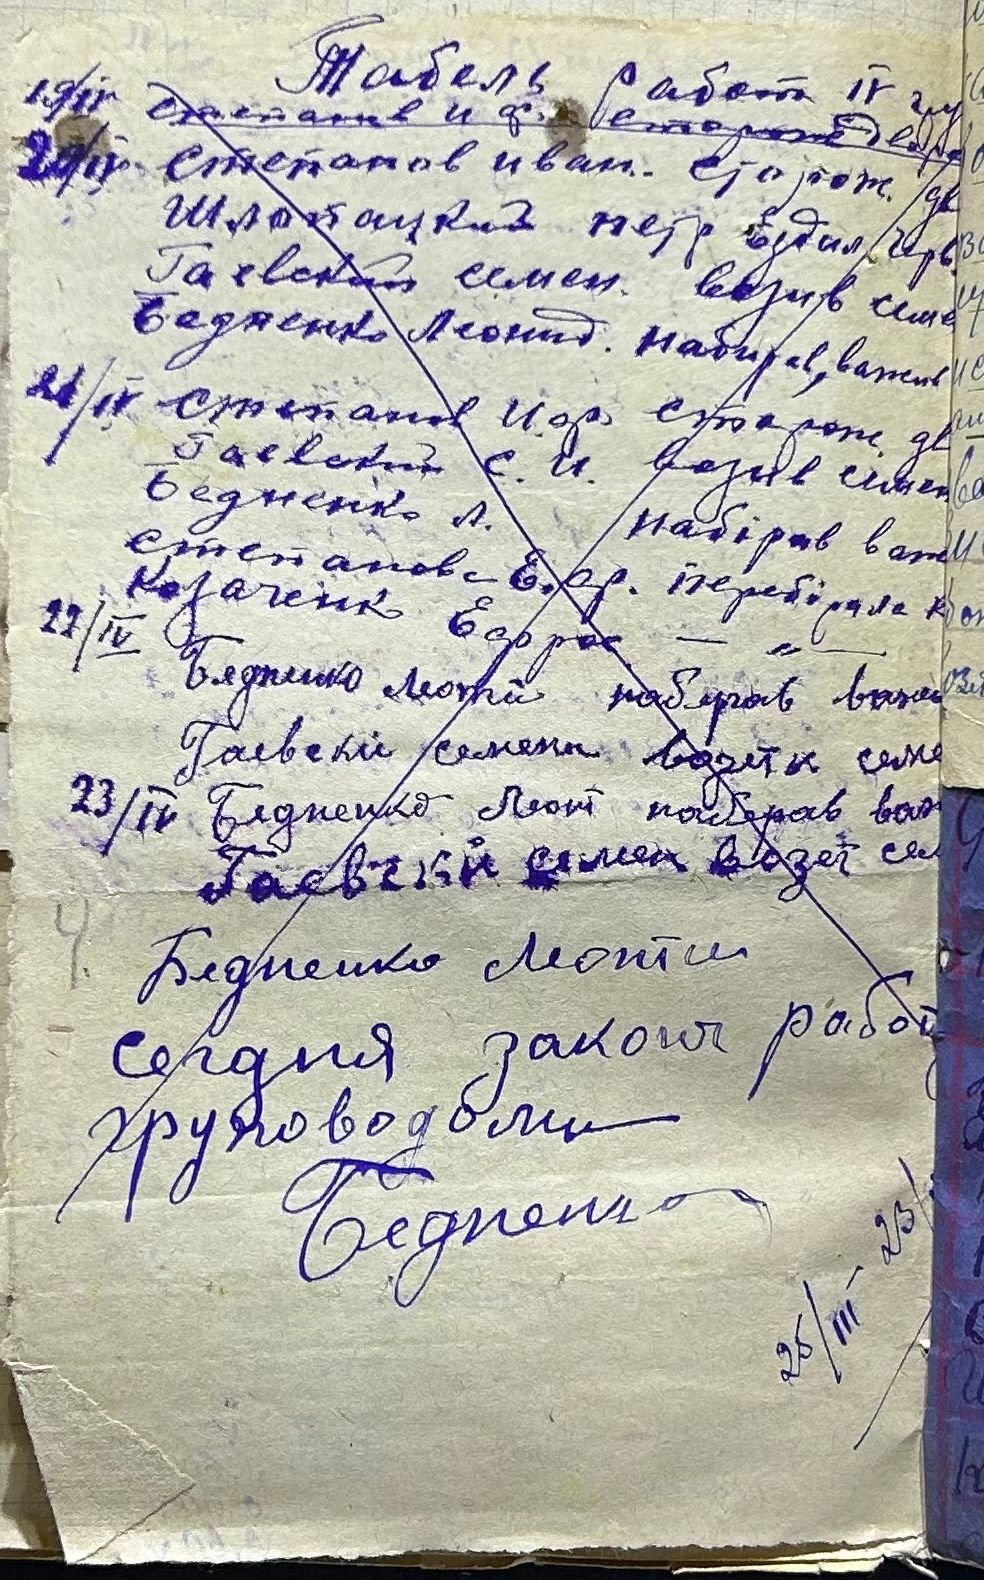 Табель работ IV гру
19/IV Степанов И. Ф. Сторож двора
20/IV Степанов Иван. Сторож. дв
Шлопацкий петр Ездил Черв.
Гаевский семен. возив семе
Бедненко Леонид. набирав, важив
21/IV Степанов И.ф. Сторож дв
Гаевский С. И. возив семен
Бедненко Л. набірав важ
Степанова Е. ф. перебірала к
Козаченк Ефрос — „ —
22/IV
Бедненко Леонтій наберав важи
Гаевскій семен возет семе
23/IV Бедненко Леонт наберав важ
Гаевскій семен возет сем
4
Бедненко Леонтий
сегодня закончил работ
груповодом
Бедненко
23/
25/III